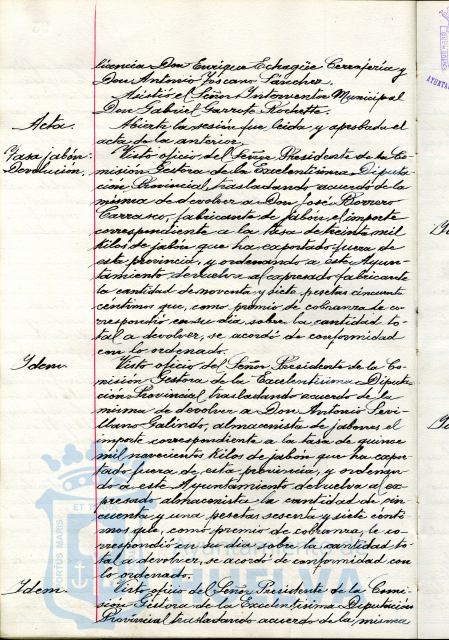 licencia Don Enrique Echagüe Cerrajería y
Don Antonio Toscano Sánchez.
Asistió el Señor Interventor Municipal
Don Gabriel Garrote Rochette.
Acta.
Abierta la sesión fue leida y aprobada el
acta de la anterior.
Tasa jabón.
Devolución.
Visto oficio del Señor Presidente de la Co-
misión Gestora de la Excelentísima Diputa-
ción Provincial trasladando acuerdo de la
misma de devolver a Don José Borrero
Carrasco, fabricante de jabón, el importe
correspondiente a la tasa de treinta mil
kilos de jabón que ha exportado fuera de
esta provincia, y ordenando a este Ayun-
tamiento devuelva al expresado fabricante
la cantidad de noventa y siete pesetas cincuenta
céntimos que, como premio de cobranza le co-
rrespondió en su dia sobre la cantidad to-
tal a devolver, se acordó de conformidad
con lo ordenado.
Idem
Visto oficio del Señor Presidente de la Co-
misión Gestora de la Excelentísima Diputa-
ción Provincial trasladando acuerdo de la
misma de devolver a Don Antonio Sevi-
llano Galindo, almacenista de jabones el
importe correspondiente a la tasa de quince
mil novecientos kilos de jabón que ha expor-
tado fuera de esta provincia, y ordenan-
do a este Ayuntamiento devuelva al ex-
presado almacenista la cantidad de cin-
cuenta y una pesetas sesenta y siete cénti-
mos que, como premio de cobranza, le co-
rrespondió en su dia sobre la cantidad to-
tal a devolver, se acordó de conformidad con
lo ordenado.
Idem
Visto oficio del Señor Presidente de la Comi-
sión Gestora de la Excelentísima Diputación
Provincial trasladando acuerdo de la misma
PORTUS MARIS
ET
Ayuntamiento de
HUELVA